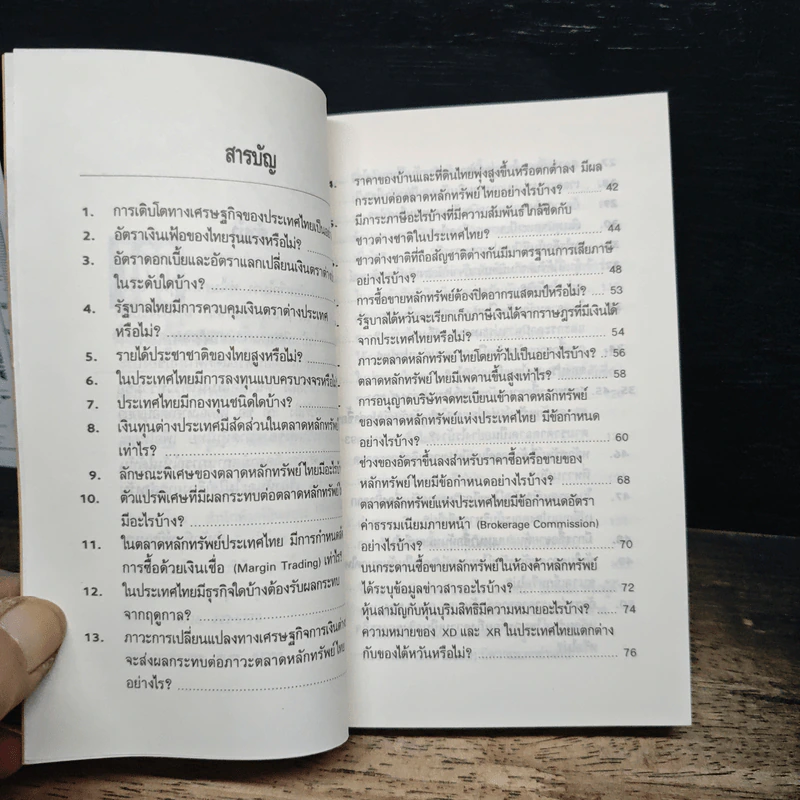 สารบัญ
1. การเติบโตทางเศรษฐกิจของประเทศไทยเป็น
2. อัตราเงินเฟ้อของไทยรุนแรงหรือไม่?
3. อัตราดอกเบี้ยและอัตราแลกเปลี่ยนเงินตราต่าง
ในระดับใดบ้าง?
4. รัฐบาลไทยมีการควบคุมเงินตราต่างประเทศ
หรือไม่?
5. รายได้ประชาชาติของไทยสูงหรือไม่?
6. ในประเทศไทยมีการลงทุนแบบครบวงจรหรือไม่
7. ประเทศไทยมีกองทุนชนิดใดบ้าง?
8. เงินทุนต่างประเทศมีสัดส่วนในตลาดหลักทรัพย์
เท่าไร?
9. ลักษณะพิเศษของตลาดหลักทรัพย์ไทยมีอะไร
10. ตัวแปรพิเศษที่มีผลกระทบต่อตลาดหลักทรัพย์
มีอะไรบ้าง?
11. ในตลาดหลักทรัพย์ประเทศไทย มีการกำหนด
การซื้อด้วยเงินเชื่อ (Margin Trading) เท่าไร
12. ในประเทศไทยมีธุรกิจใดบ้างต้องรับผลกระทบ
จากฤดูกาล?
13. ภาวะการเปลี่ยนแปลงทางเศรษฐกิจการเงิน
จะส่งผลกระทบต่อภาวะตลาดหลักทรัพย์ไทย
อย่างไร?
ราคาของบ้านและที่ดินไทยพุ่งสูงขึ้นหรือตกต่ำลง มีผล
กระทบต่อตลาดหลักทรัพย์ไทยอย่างไรบ้าง? 42
มีภาระภาษีอะไรบ้างที่มีความสัมพันธ์ใกล้ชิดกับ
ชาวต่างชาติในประเทศไทย? 44
ชาวต่างชาติที่ถือสัญชาติต่างกันมีมาตรฐานการเสียภาษี
อย่างไรบ้าง? 48
การซื้อขายหลักทรัพย์ต้องปิดอากรแสตมป์หรือไม่? 53
รัฐบาลไต้หวันจะเรียกเก็บภาษีเงินได้จากราษฎรที่มีเงินได้
จากประเทศไทยหรือไม่? 54
ภาวะตลาดหลักทรัพย์ไทยโดยทั่วไปเป็นอย่างไรบ้าง? 56
ตลาดหลักทรัพย์ไทยมีเพดานขึ้นสูงเท่าไร? 58
การอนุญาตบริษัทจดทะเบียนเข้าตลาดหลักทรัพย์
ของตลาดหลักทรัพย์แห่งประเทศไทย มีข้อกำหนด
อย่างไรบ้าง? 60
ช่วงของอัตราขึ้นลงสำหรับราคาซื้อหรือขายของ
หลักทรัพย์ไทยมีข้อกำหนดอย่างไรบ้าง? 68
ตลาดหลักทรัพย์แห่งประเทศไทยมีข้อกำหนดอัตรา
ค่าธรรมเนียมภายหน้า (Brokerage Commission)
อย่างไรบ้าง? 70
บนกระดานซื้อขายหลักทรัพย์ในห้องค้าหลักทรัพย์
ได้ระบุข้อมูลข่าวสารอะไรบ้าง? 72
หุ้นสามัญกับหุ้นบุริมสิทธิมีความหมายอะไรบ้าง? 74
ความหมายของ XD และ XR ในประเทศไทยแตกต่าง
กับของไต้หวันหรือไม่? 76